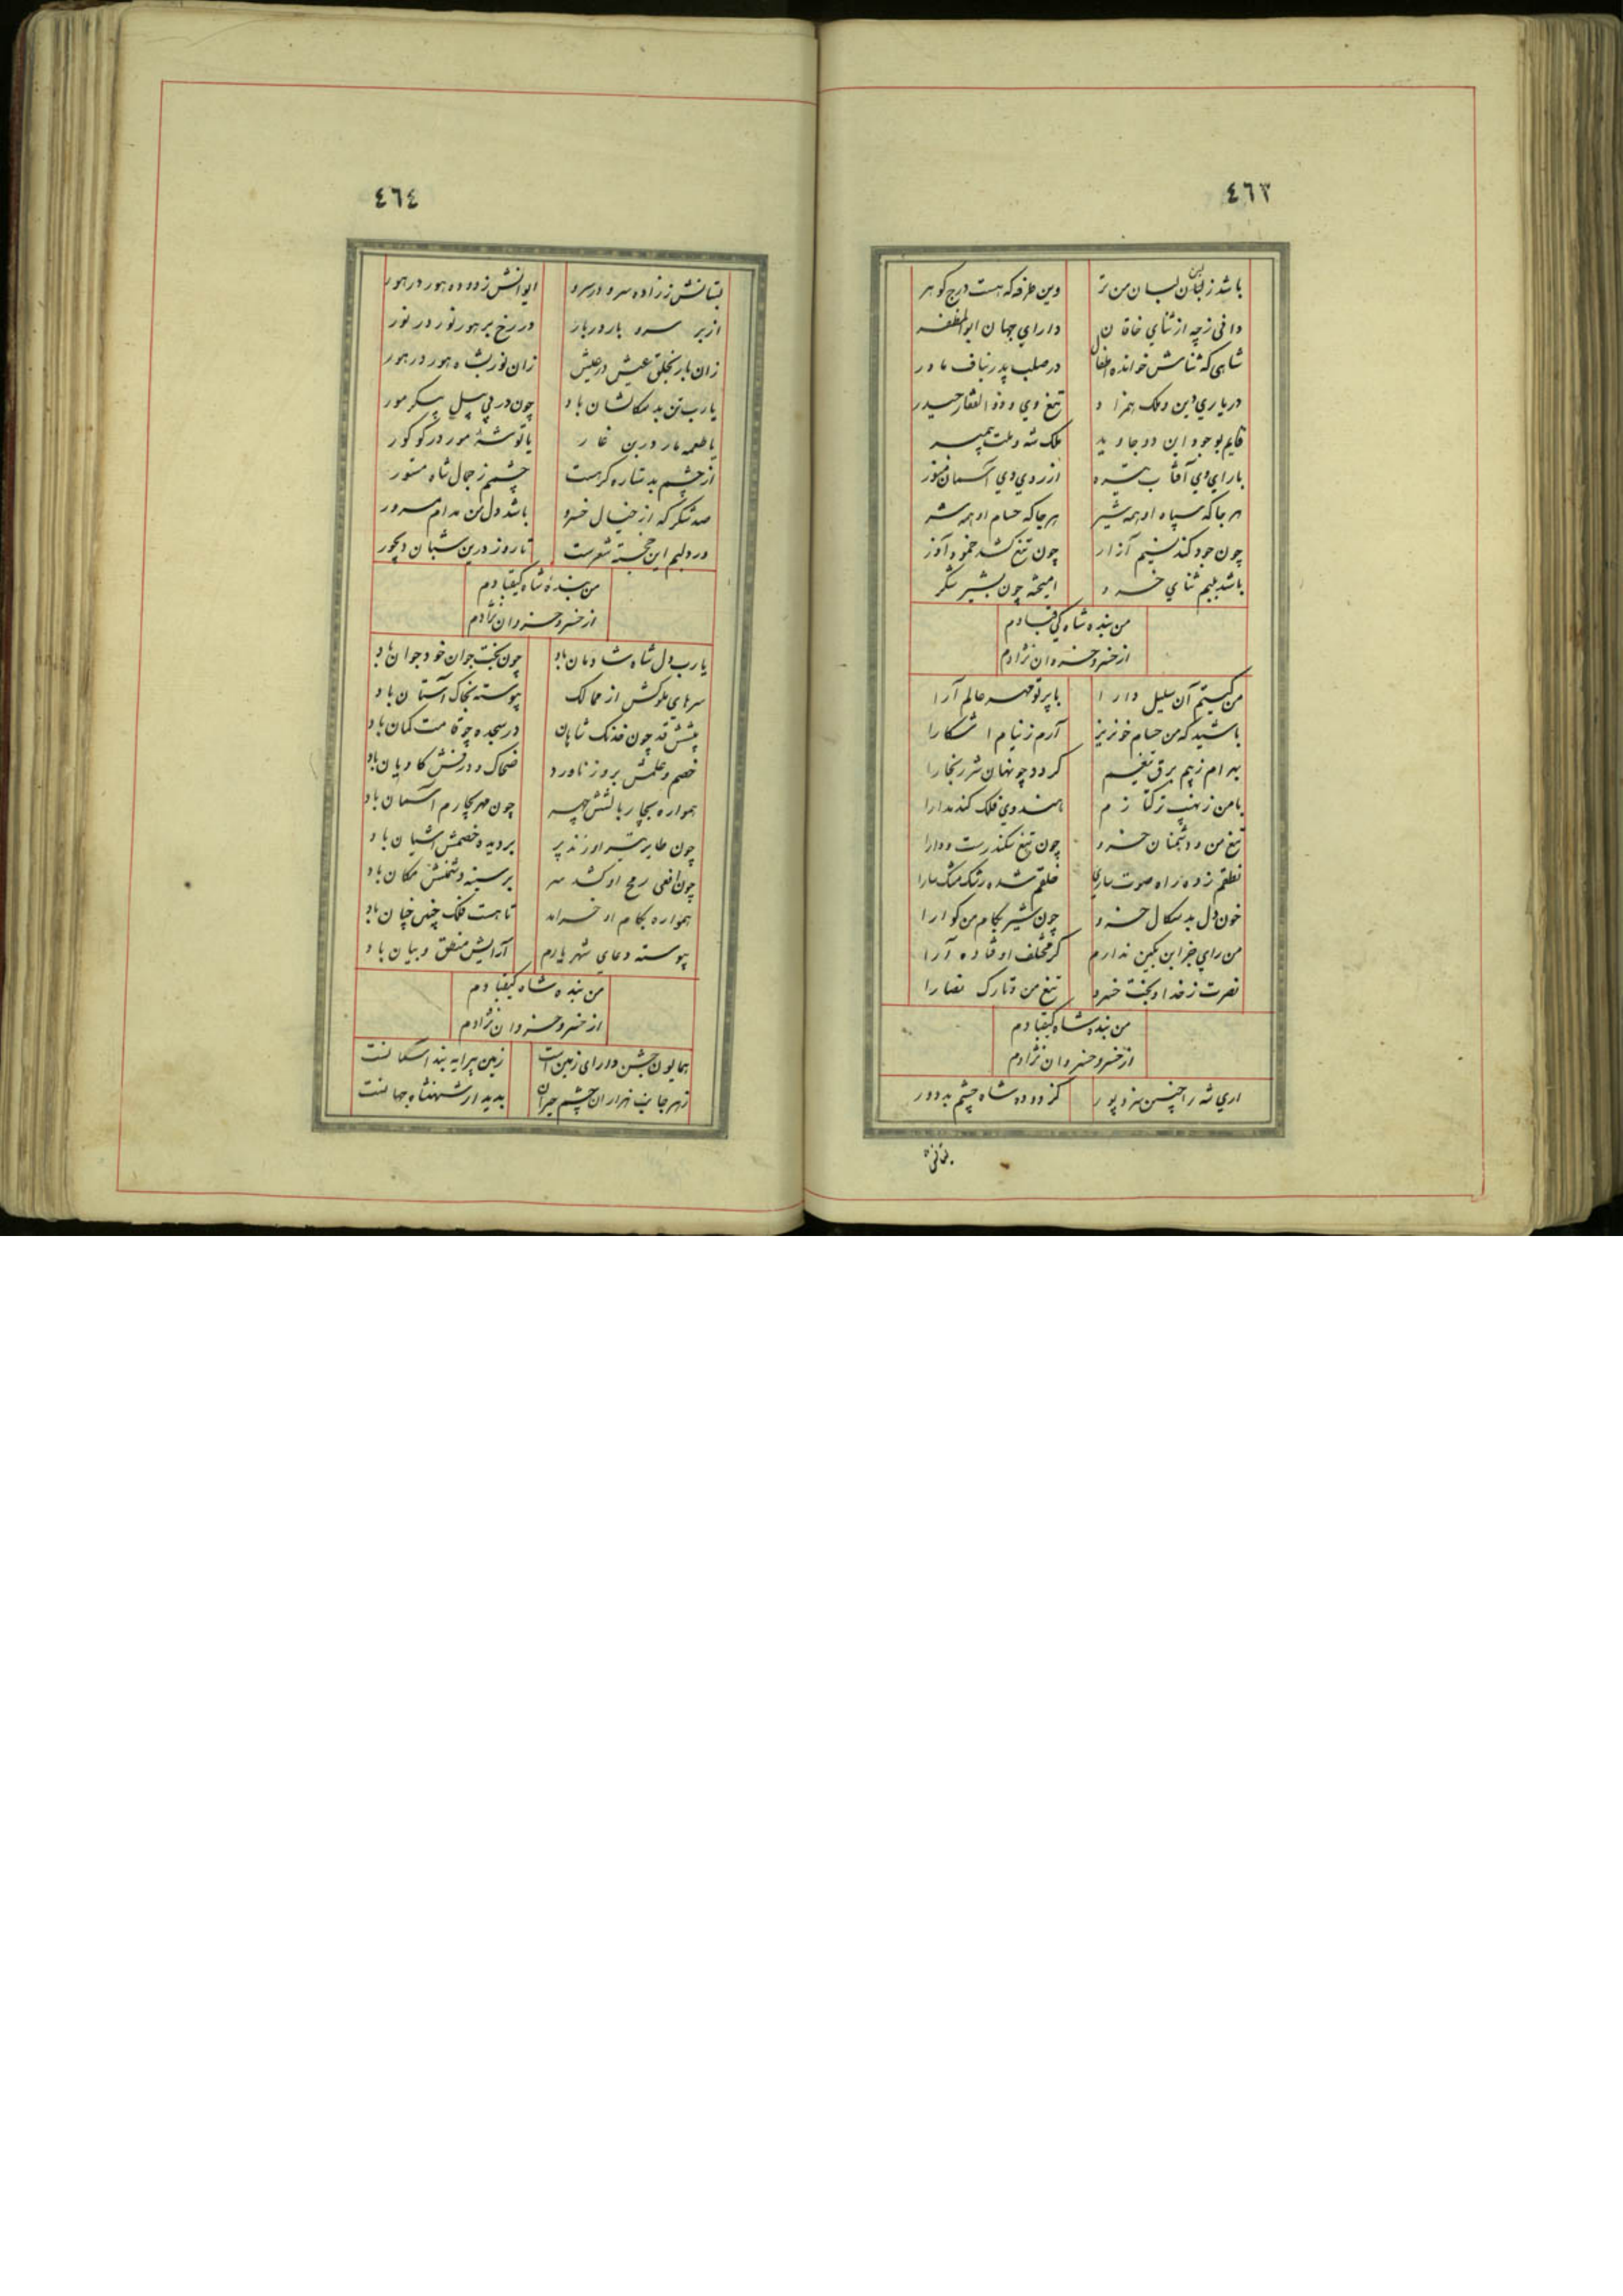 ٤٦٣
باشد ز لبان لبسان من تر وین طرفه که هست درج گوهر
دانی ز چه از ثنای خاقان دارای جهان ابوالمظفر
شاهی که ثناش خوانده اطفال در صلب پدر بناف مادر
در یاری دین و ملک همزاد تیغ وی و ذوالفقار حیدر
قایم بوجود این دو جاوید ملک شه و ملت پیمبر
با رای وی آفتاب تیره از روی وی آسمان منور
هر جا که سپاه او همه شیر هر جا که حسام او همه شر
چون جود کند نسیم آزار چون تیغ کشد خموم آذر
باشد بلبم ثنای خسرو امیخته چون بشیر شکر
من بنده شاه کیقبادم
از خسرو خسروان نژادم
من کیستم آن سلیل دارا با پرتو مهر عالم آرا
باشید که من حسام خونریز آرم ز نیام اشکارا
بهرام ز بیم برق تیغم گردد چو نهان شرر بخارا
با من ز نهیب ترکتازم هندوی فلک کند مدارا
تیغ من و دشمنان خسرو چون تیغ سکندرست و دارا
نطقم زده راه صوت ساری خلقم شده رشک مشک سارا
خون دل بدسگال خسرو چون شیر بکام من گوارا
من رای جز این بکین ندارم گر مختلف اوفتاده آرا
نصرت ز خدا و بخت خسرو تیغ من و تارک نصارا
من بنده شاه کیقبادم
از خسرو خسروان نژادم
اری شه را چنین سزد پور کز دوده شاه چشم بد دور
٤٦٤
بستانش ز زاده سرو در سرو ایوانش ز دوده هور در هور
از بر سرو بار در بار در رخ بر هور نور در نور
زان بار بخلق عیش در عیش زان نور بشاه هور در هور
یا رب تن بدسگالشان باد چون در پی پیل پیکر مور
یا طعمه مار در بن غار یا توشهٔ مور در گو گور
از چشم بد ستاره گر هست چشمم ز جمال شاه مستور
صد شکر که از خیال خسرو باشد دل من مدام مسرور
ورد لبم این خجسته شعرست تا روز درین شبان دیجور
من بندهٔ شاه کیقبادم
از خسرو خسروان نژادم
یا رب دل شاه شادمان باد چون بخت جوان خود جوان باد
سرهای ملوکش از ممالک پیوسته بخاک آستان باد
پیشش قد چون خدنگ شاهان در سجده چو قامت کمان باد
خصم و علمش بروز ناورد ضحاک و درفش کاویان باد
همواره بچار بالشش چهر چون مهر بچارم آسمان باد
چون طایر تیر او زند پر بر دیده خصمش اشیان باد
چون افعی رمح او کشد سر بر سینه دشمنش مکان باد
همواره بکام او خرامد تا هست فلک چنین چنان باد
پیوسته دعای شهریارم آرایش منطق و بیان باد
من بنده شاه کیقبادم
از خسرو خسروان نژادم
همایون جشن دارای زمین است زمین پیرایه بند اسمانست
ز هر جانب هزاران چشم حیران بدیدار شهنشاه جهانست